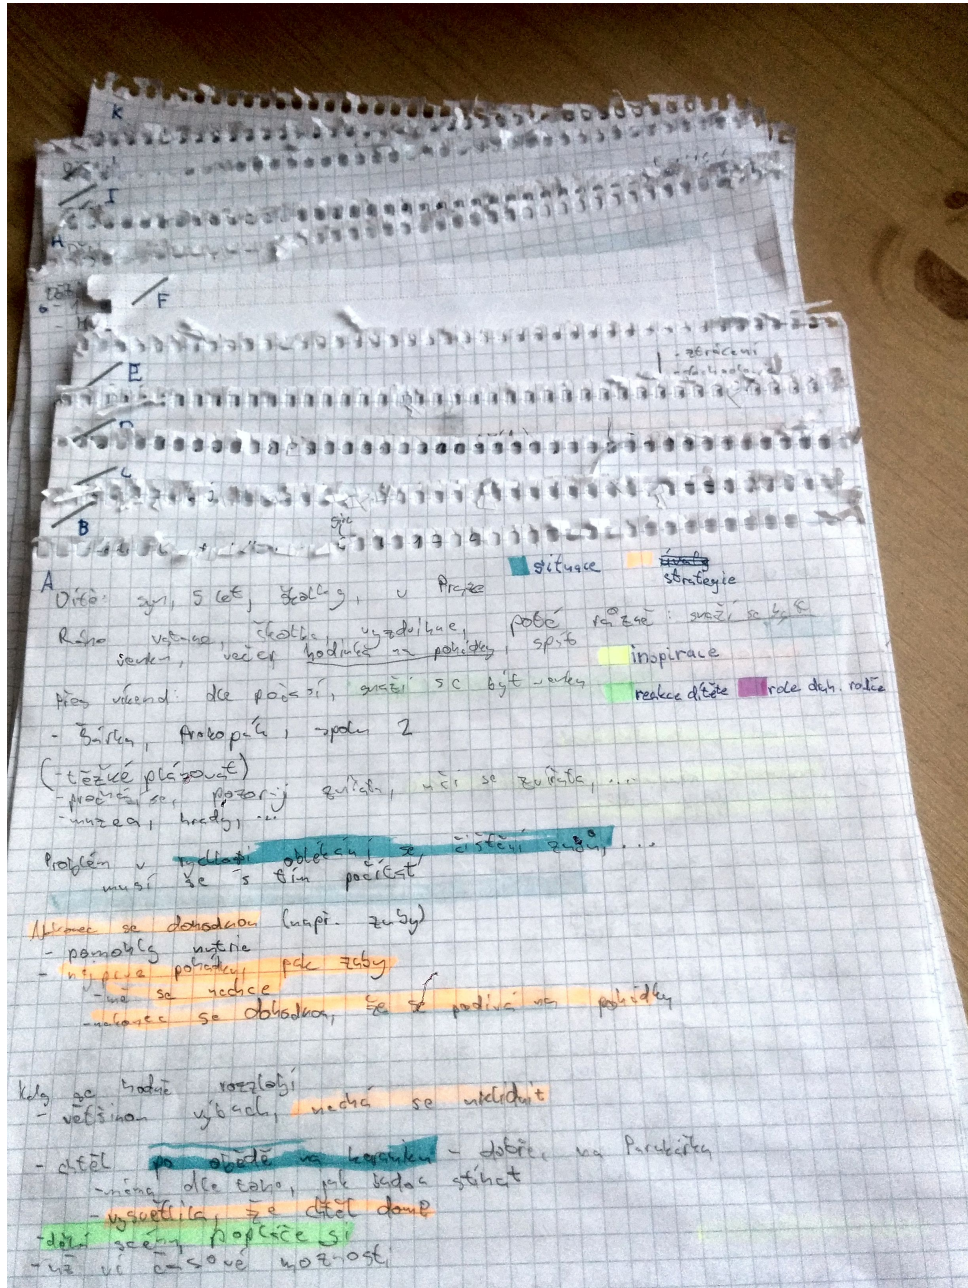 K
I
H
F
E
- ztrácení
C
B
A
situace
strategie
Dítě: syn, 5 let, školky, v Praze
Ráno vstane, školka, vyzvedne, poté různě: snaží se být
venku, večer hodinka na pohádky, spát
inspirace
Přes víkend: dle počasí, snaží se být venku
reakce dítěte
role druh. rodiče
- Šárka, Prokopák, spolu 2
(- těžké plázovat)
- prochází se, pozorují zvířata, učí se zvířata, ...
- muzea, hrady, ...
Problém v rychlosti oblékání se čištění zubů, ...
musí se s tím počítat
Nakonec se dohodnou (např. zuby)
- pomohly nutrie
- nejprve pohádky, pak zuby
- se nechce
- nakonec se dohodnou, že se podívá na pohádky
Kdy se hodně rozzlobí
- většinou výbuch, nechá se uklidnit
- chtěl po obědě na keramiku - dobře, na Parukářku
- dle toho, jak budou stíhat
- vysvětlila, že chtěl domů
- dělá scény, popláče si
- už ví časové možnosti